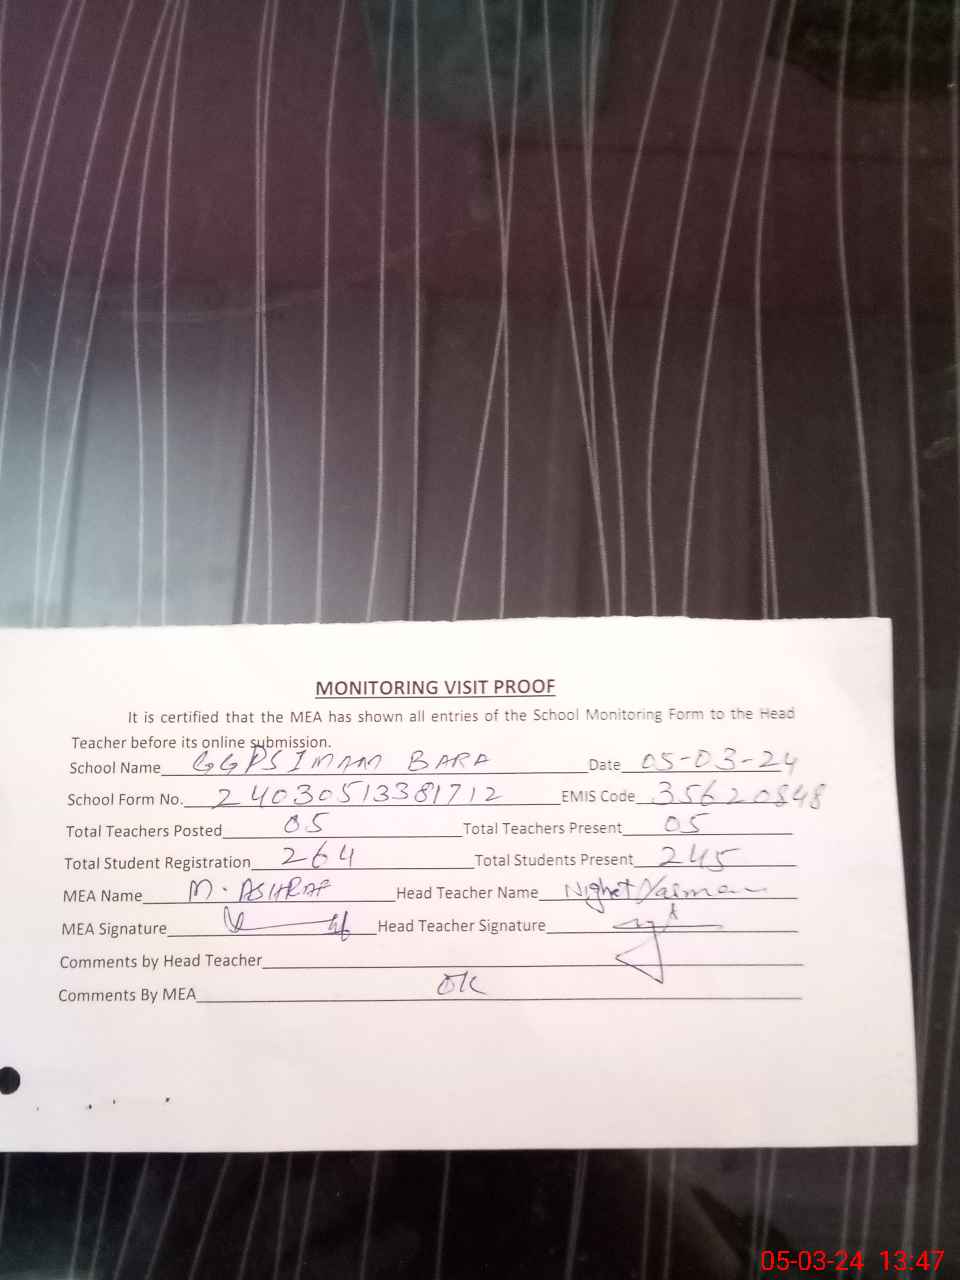 MONITORING VISIT PROOF
It is certified that the MEA has shown all entries of the School Monitoring Form to the Head
Teacher before its online submission.
School Name GGPS IMAM BARA Date 05-03-24
School Form No. 24030513381712 EMIS Code 35620848
Total Teachers Posted 05 Total Teachers Present 05
Total Student Registration 264 Total Students Present 245
MEA Name M. ASHRAF Head Teacher Name Nighet Yasmeen
MEA Signature Head Teacher Signature
Comments by Head Teacher
Comments By MEA OK
05-03-24 13:47